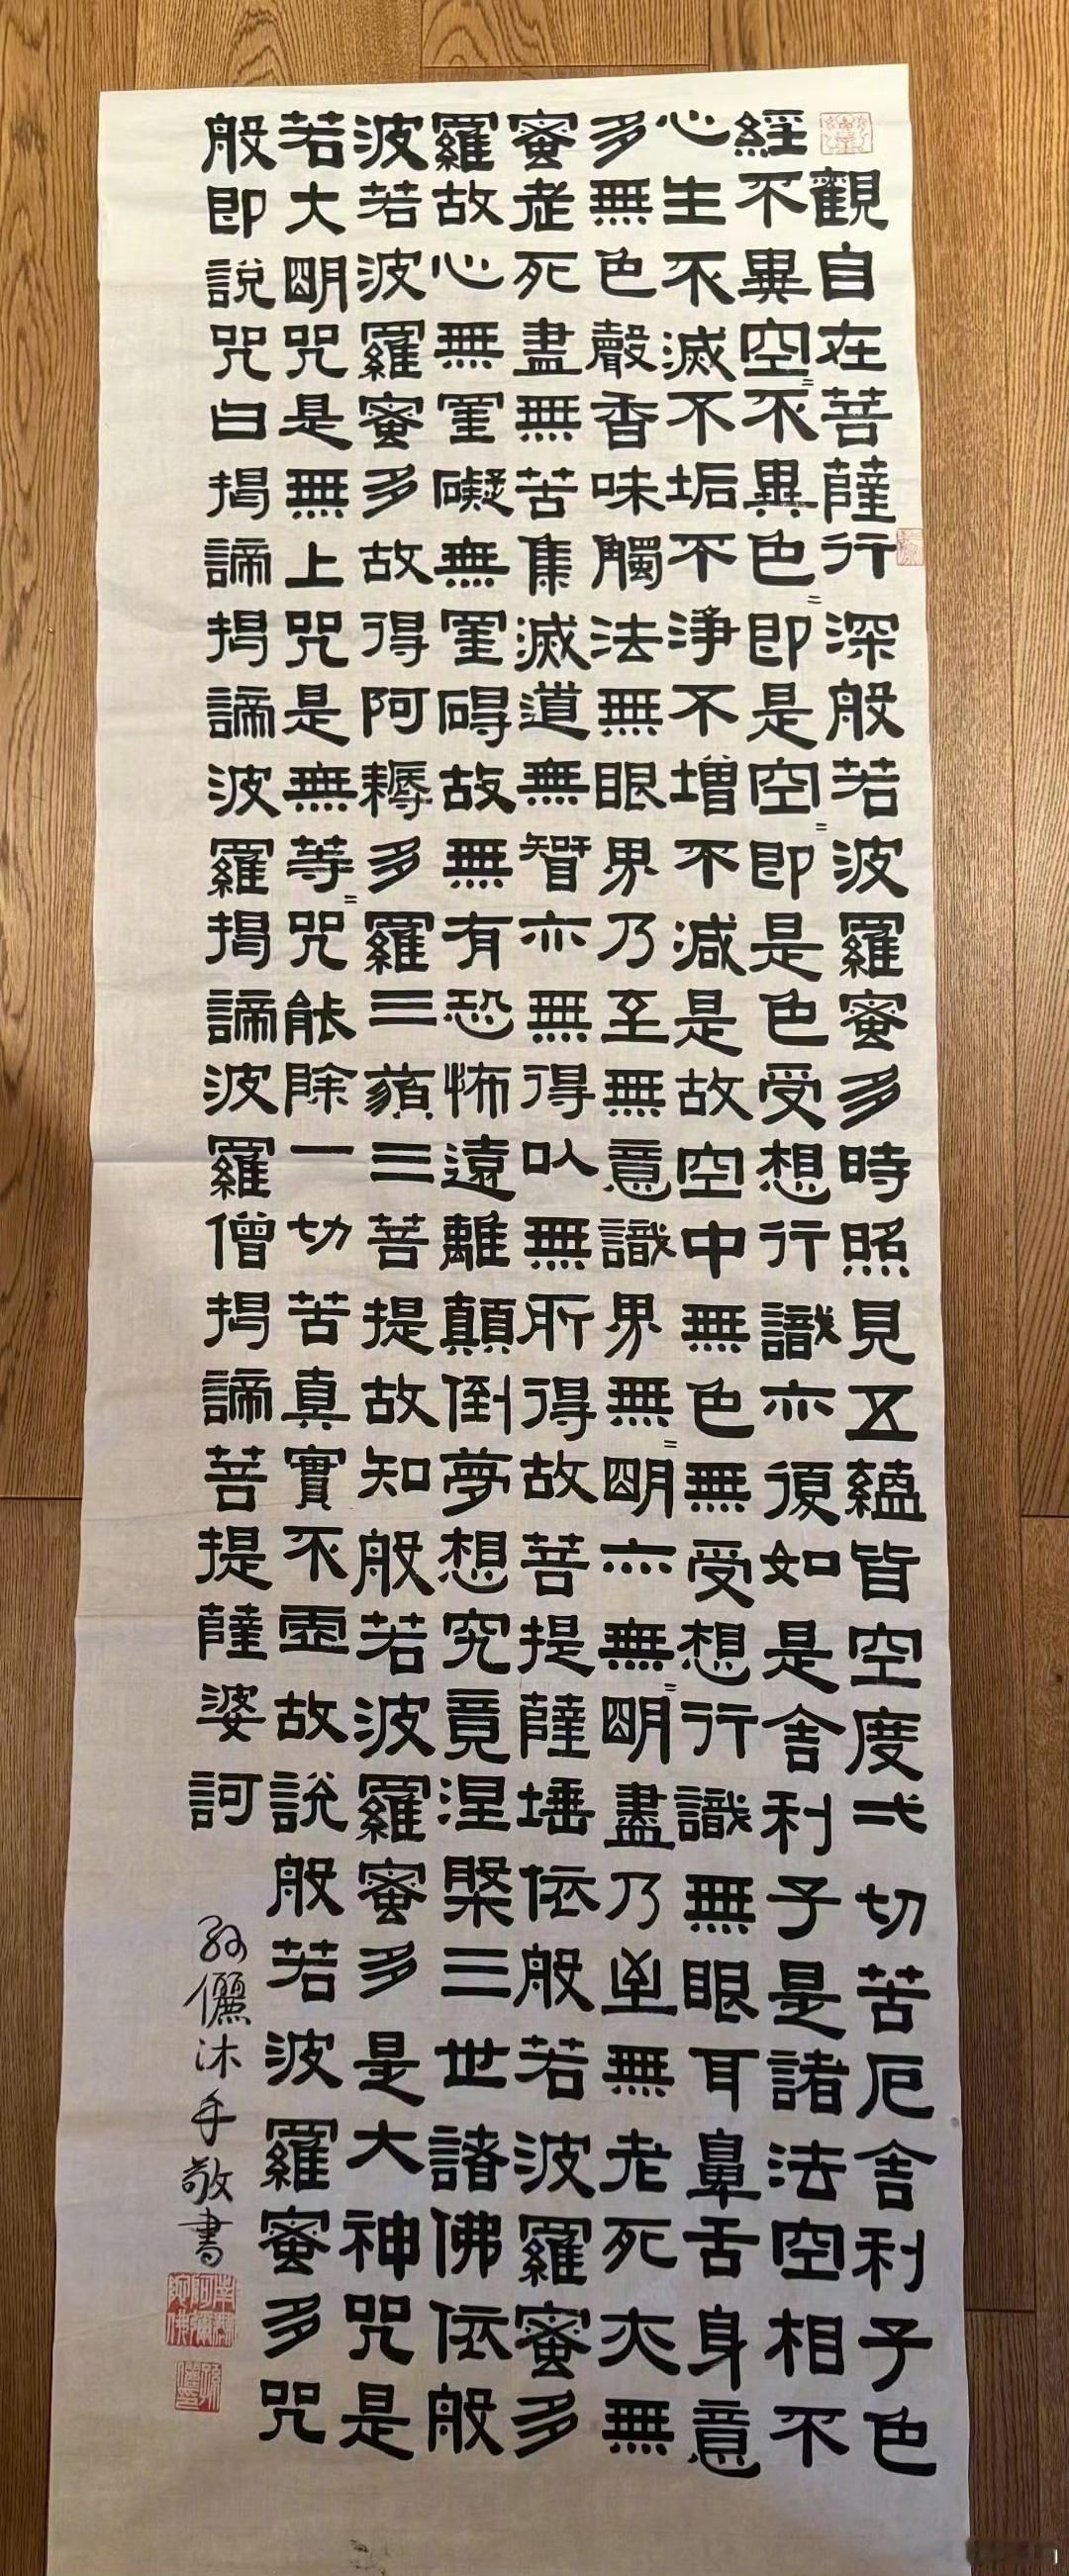 般若波羅蜜多心經
觀自在菩薩行深般若波羅蜜多時照見五蘊皆空度弌切苦厄舍利子色
不異空=不異色=即是空=即是色受想行識亦復如是舍利子是諸法空相不
生不滅不垢不淨不增不減是故空中無色無受想行識無眼耳鼻舌身意
無色聲香味觸法無眼界乃至無意識界無=明亦無=明盡乃至無老死亦無
老死盡無苦集滅道無智亦無得以無所得故菩提薩埵依般若波羅蜜多
故心無罣礙無罣碍故無有恐怖遠離顛倒夢想究竟涅槃三世諸佛依般
若波羅蜜多故得阿耨多羅三藐三菩提故知般若波羅蜜多是大神咒是
大明咒是無上咒是無等=咒能除一切苦真實不虛故說般若波羅蜜多咒
即說咒曰揭諦揭諦波羅揭諦波羅僧揭諦菩提薩婆訶
孫儷沐手敬書
南無阿彌陀佛